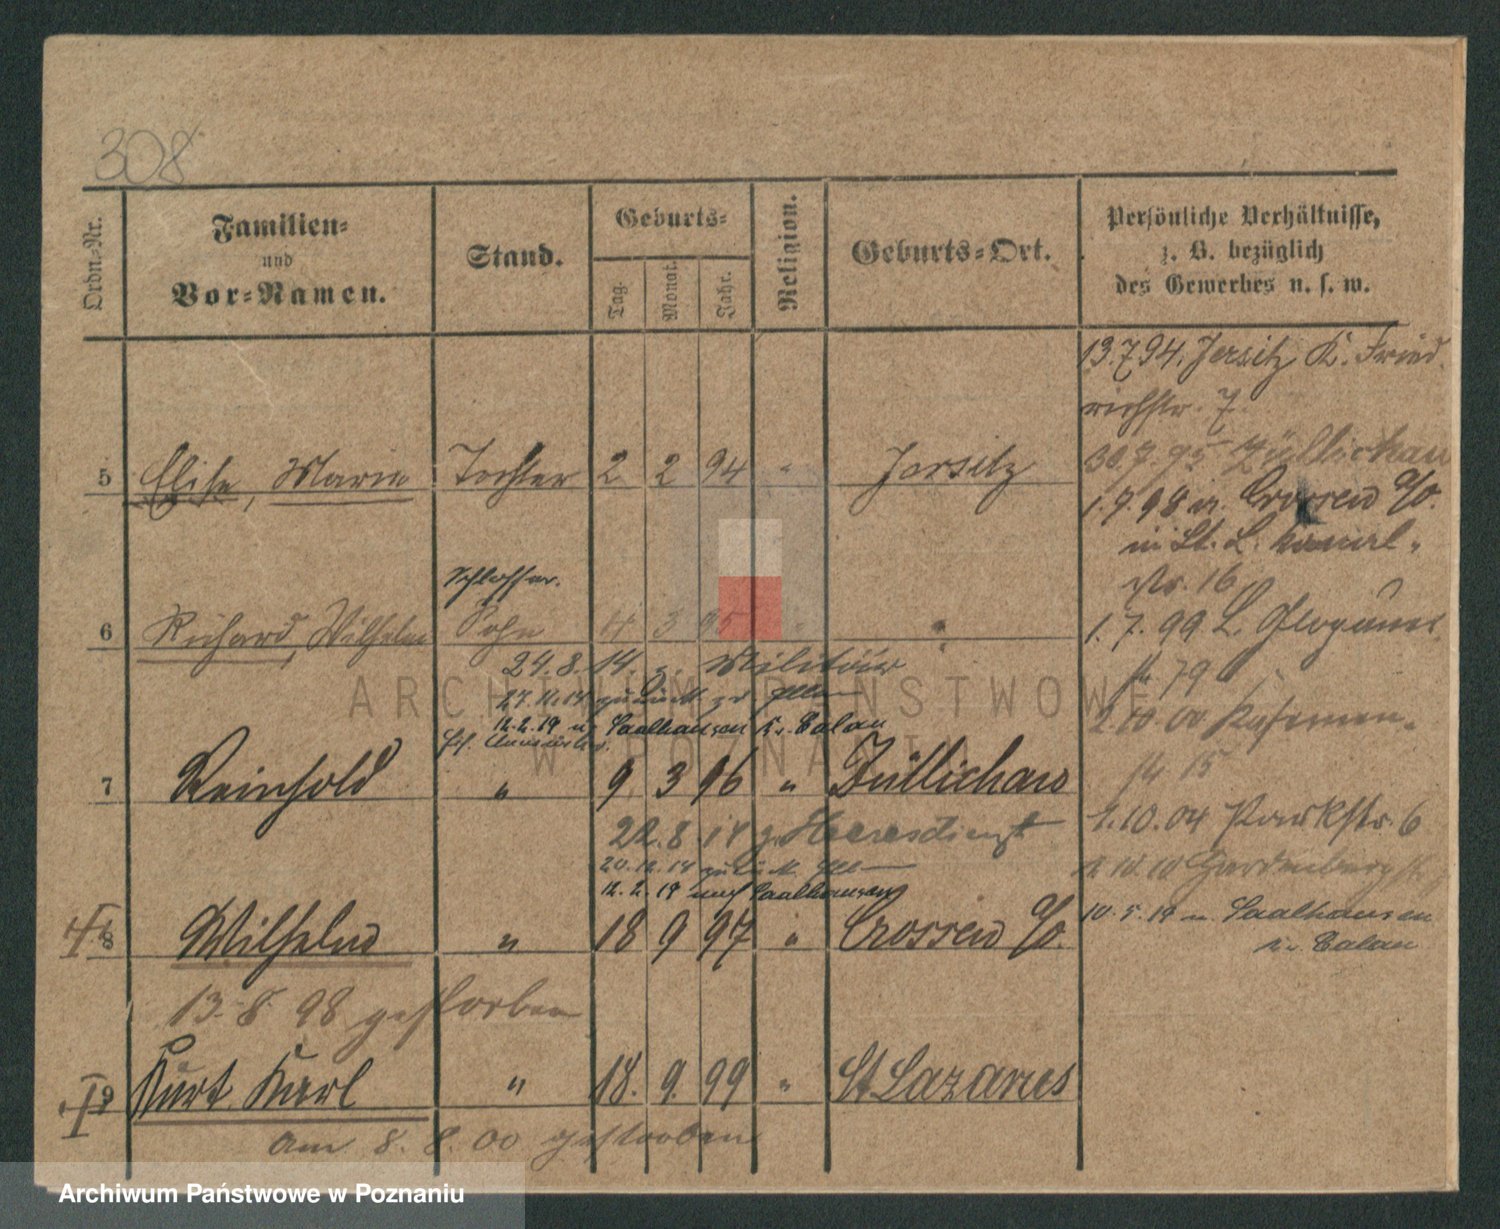 308
Ordn.-Nr.
Familien-
und
Vor-Namen.
Stand.
Geburts-
Tag.
Monat.
Jahr.
Religion.
Geburts-Ort.
Persönliche Verhältnisse,
z. B. bezüglich
des Gewerbes u. s. w.
13.7.94. Jersitz K. Fried
richstr. 7
30.7.95 Züllichau
5 Elise, Marie Tochter 2 2 94 " Jersitz
1.7.98 Crossen a/O.
in St. L. Kanal-
str. 16
Schlosser.
6 Richard, Wilhelm Sohn 4 3 95 " "
1.7.99 L. Glogauer
str 79
24.8.14. z. Militär
27.11.14 zurück
12.2.19 n. Saalhausen Kr. Calau
2.10.00
15
7 Reinhold " 9 3 96 " Züllichau
1.10.04 Parkstr. 6
22.8.14 z. Heeresdienst
20.12.14 zurück
12.2.19 nach Saalhausen
10.5.19 n. Saalhausen
Kr. Calau
8 Wilhelm " 18 9 97 " Crossen a/O.
13.8.98 gestorben
9 Kurt Karl " 18. 9. 99 " St Lazarus
am 8.8.00 gestorben
ARCHIWUM PAŃSTWOWE
W POZNANIU
Archiwum Państwowe w Poznaniu